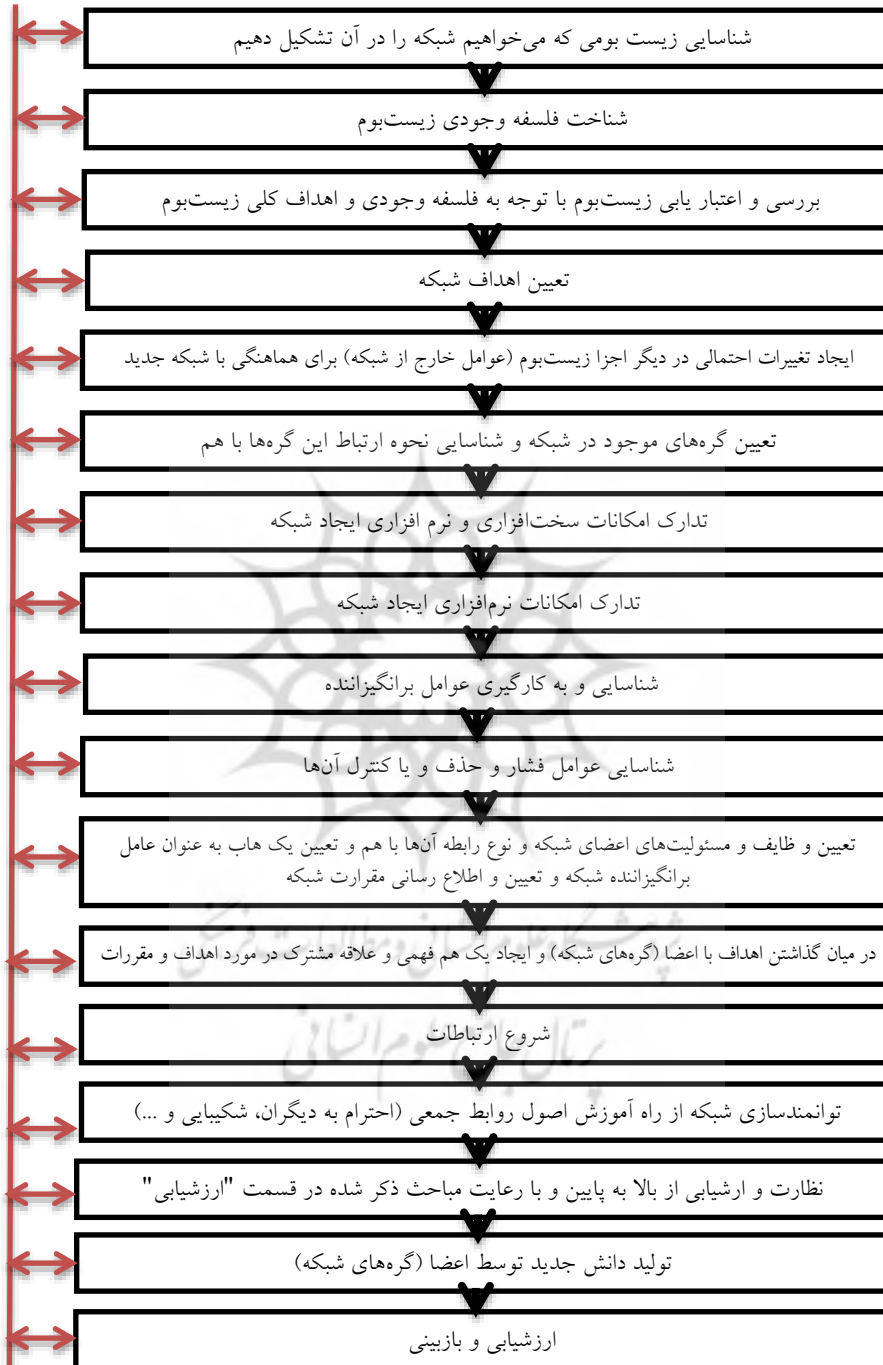 شناسایی زیست بومی که می‌خواهیم شبکه را در آن تشکیل دهیم
شناخت فلسفه وجودی زیست‌بوم
بررسی و اعتبار یابی زیست‌بوم با توجه به فلسفه وجودی و اهداف کلی زیست‌بوم
تعیین اهداف شبکه
ایجاد تغییرات احتمالی در دیگر اجزا زیست‌بوم (عوامل خارج از شبکه) برای هماهنگی با شبکه جدید
تعیین گره‌های موجود در شبکه و شناسایی نحوه ارتباط این گره‌ها با هم
تدارک امکانات سخت‌افزاری و نرم افزاری ایجاد شبکه
تدارک امکانات نرم‌افزاری ایجاد شبکه
شناسایی و به کارگیری عوامل برانگیزاننده
شناسایی عوامل فشار و حذف و یا کنترل آن‌ها
تعیین و ظایف و مسئولیت‌های اعضای شبکه و نوع رابطه آن‌ها با هم و تعیین یک هاب به عنوان عامل
برانگیزاننده شبکه و تعیین و اطلاع رسانی مقرارت شبکه
پژوهشگاه علوم انسانی و مطالعات فرهنگی
در میان گذاشتن اهداف با اعضا (گره‌های شبکه) و ایجاد یک هم فهمی و علاقه مشترک در مورد اهداف و مقررات
پرتال جامع علوم انسانی
شروع ارتباطات
توانمندسازی شبکه از راه آموزش اصول روابط جمعی (احترام به دیگران، شکیبایی و ...)
نظارت و ارشیابی از بالا به پایین و با رعایت مباحث ذکر شده در قسمت "ارزشیابی"
تولید دانش جدید توسط اعضا (گره‌های شبکه)
ارزشیابی و بازبینی